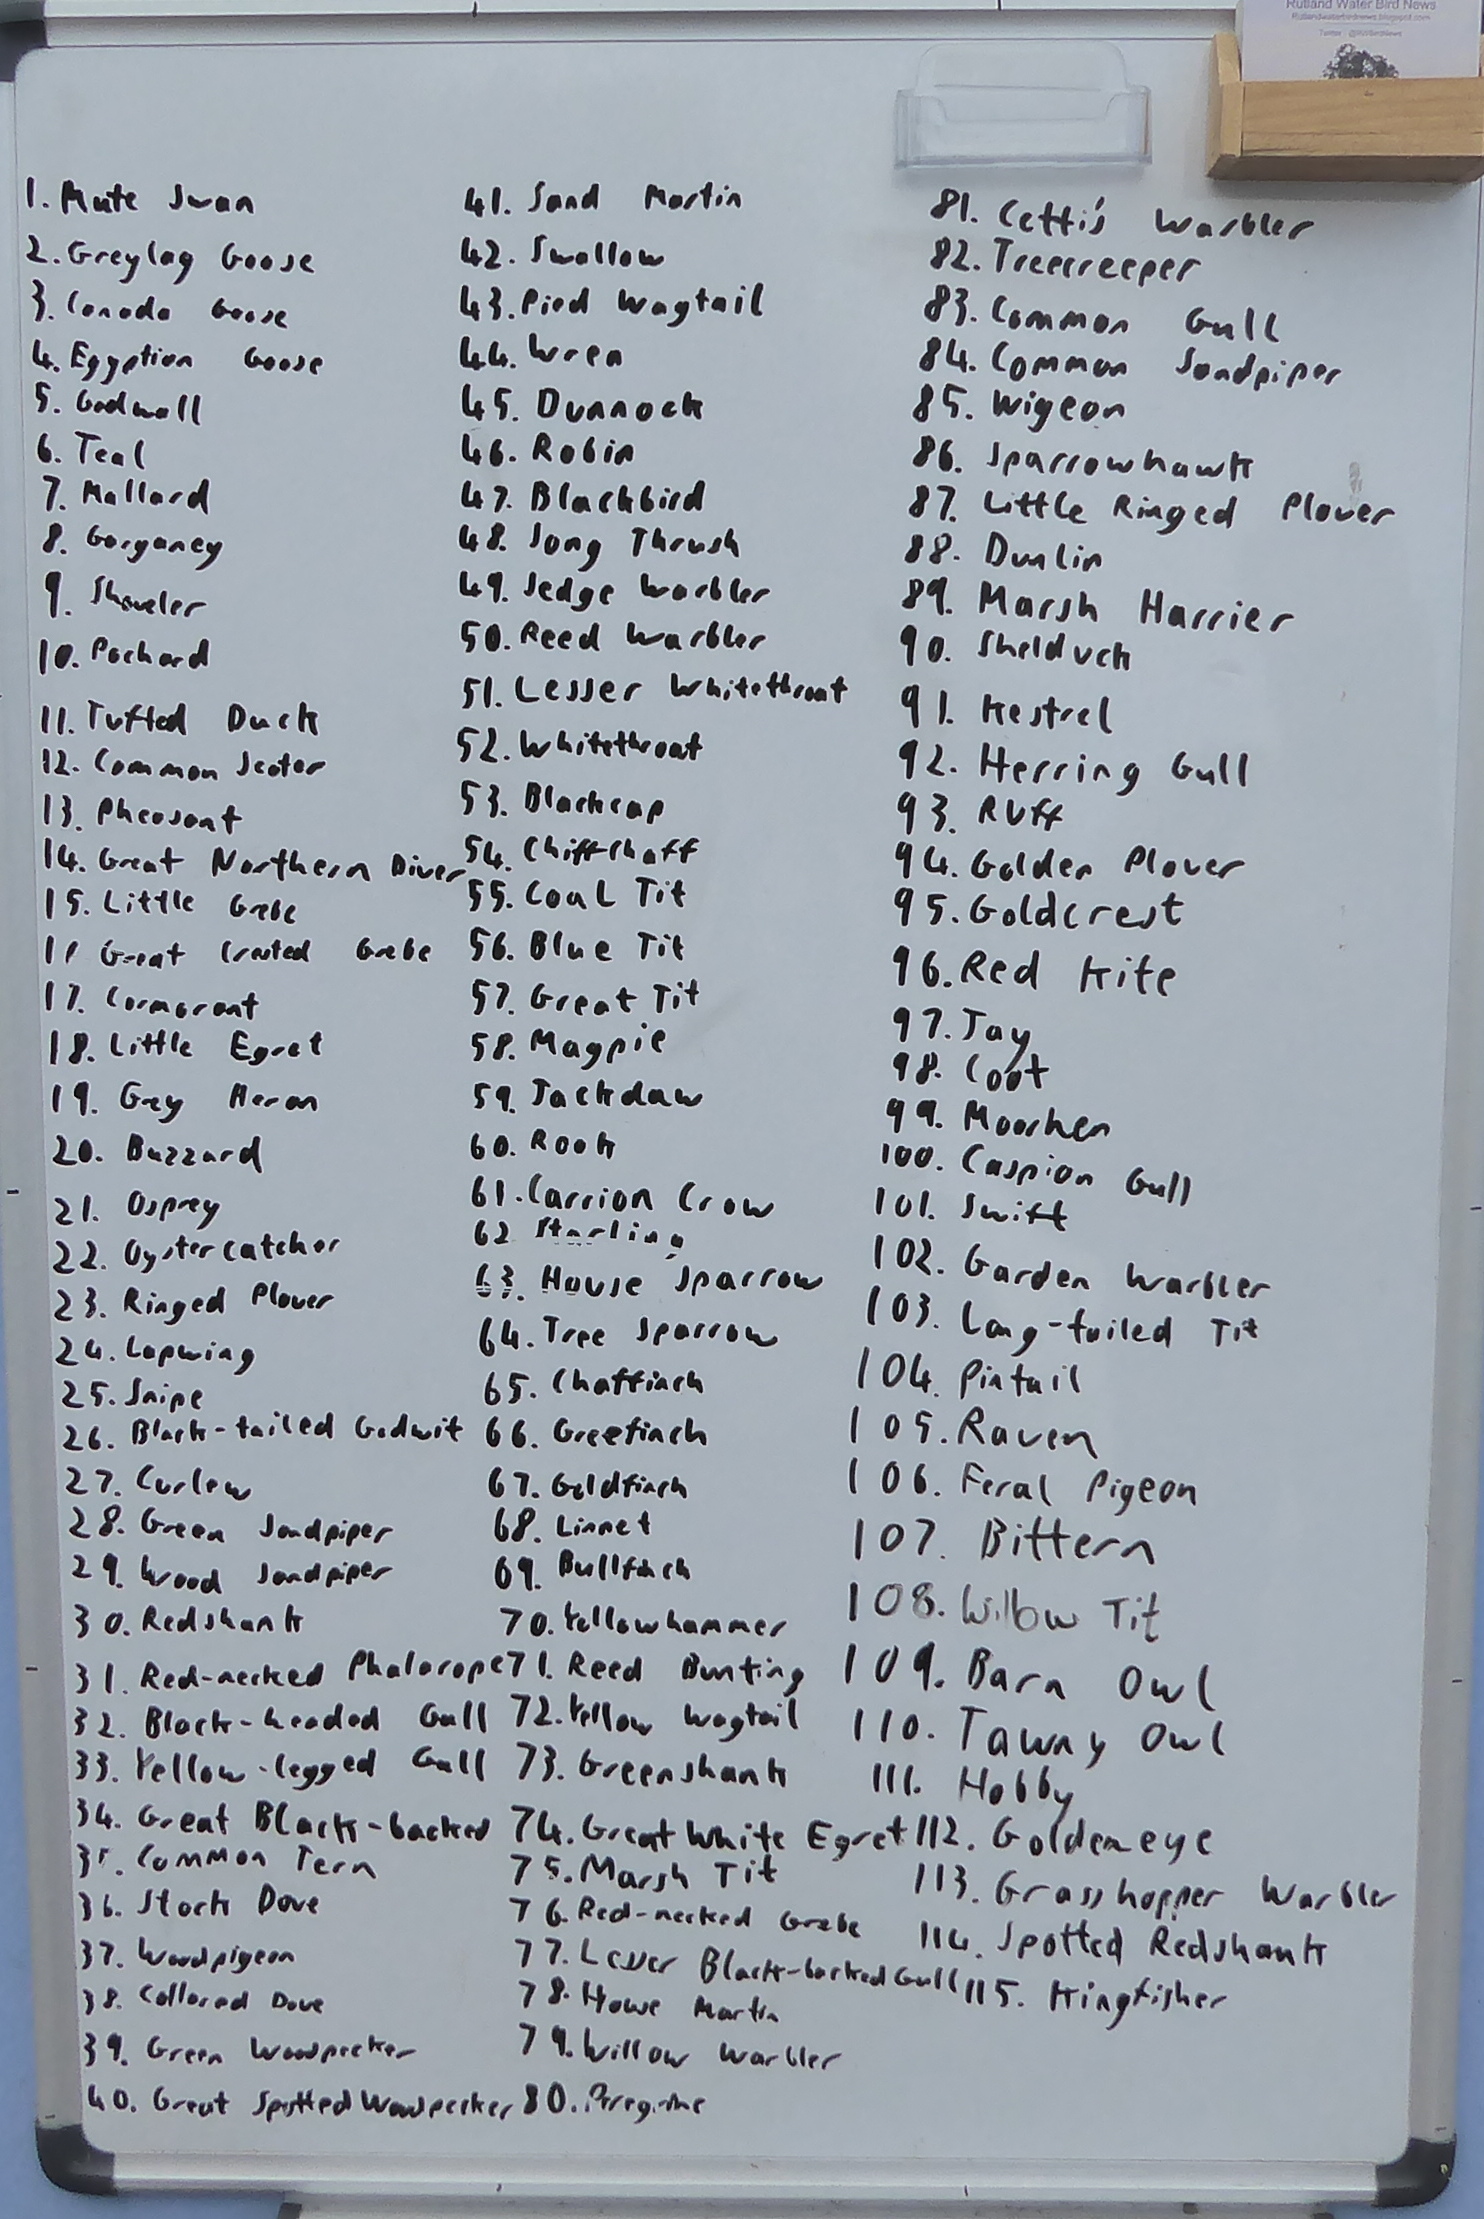 Rutland Water Bird News
Rutlandwaterbirdnews.blogspot.com
Twitter: @RWBirdNews
1. Mute Swan
2. Greylag Goose
3. Canada Goose
4. Egyptian Goose
5. Gadwall
6. Teal
7. Mallard
8. Garganey
9. Shoveler
10. Pochard
11. Tufted Duck
12. Common Scoter
13. Pheasant
14. Great Northern Diver
15. Little Grebe
16 Great Crested Grebe
17. Cormorant
18. Little Egret
19. Grey Heron
20. Buzzard
21. Osprey
22. Oystercatcher
23. Ringed Plover
24. Lapwing
25. Snipe
26. Black-tailed Godwit
27. Curlew
28. Green Sandpiper
29. Wood Sandpiper
30. Redshank
31. Red-necked Phalarope
32. Black-headed Gull
33. Yellow-legged Gull
34. Great Black-backed
35. Common Tern
36. Stock Dove
37. Woodpigeon
38. Collared Dove
39. Green Woodpecker
40. Great Spotted Woodpecker
41. Sand Martin
42. Swallow
43. Pied Wagtail
44. Wren
45. Dunnock
46. Robin
47. Blackbird
48. Song Thrush
49. Sedge Warbler
50. Reed Warbler
51. Lesser Whitethroat
52. Whitethroat
53. Blackcap
54. Chiffchaff
55. Coal Tit
56. Blue Tit
57. Great Tit
58. Magpie
59. Jackdaw
60. Rook
61. Carrion Crow
62 Starling
63. House Sparrow
64. Tree Sparrow
65. Chaffinch
66. Greefinch
67. Goldfinch
68. Linnet
69. Bullfinch
70. Yellowhammer
71. Reed Bunting
72. Yellow Wagtail
73. Greenshank
74. Great White Egret
75. Marsh Tit
76. Red-necked Grebe
77. Lesser Black-backed Gull
78. House Martin
79. Willow Warbler
80. Peregrine
81. Cetti's Warbler
82. Treecreeper
83. Common Gull
84. Common Sandpiper
85. Wigeon
86. Sparrowhawk
87. Little Ringed Plover
88. Dunlin
89. Marsh Harrier
90. Shelduck
91. Kestrel
92. Herring Gull
93. Ruff
94. Golden Plover
95. Goldcrest
96. Red Kite
97. Jay
98. Coot
99. Moorhen
100. Caspian Gull
101. Swift
102. Garden Warbler
103. Long-tailed Tit
104. Pintail
105. Raven
106. Feral Pigeon
107. Bittern
108. Willow Tit
109. Barn Owl
110. Tawny Owl
111. Hobby
112. Goldeneye
113. Grasshopper Warbler
114. Spotted Redshank
115. Kingfisher